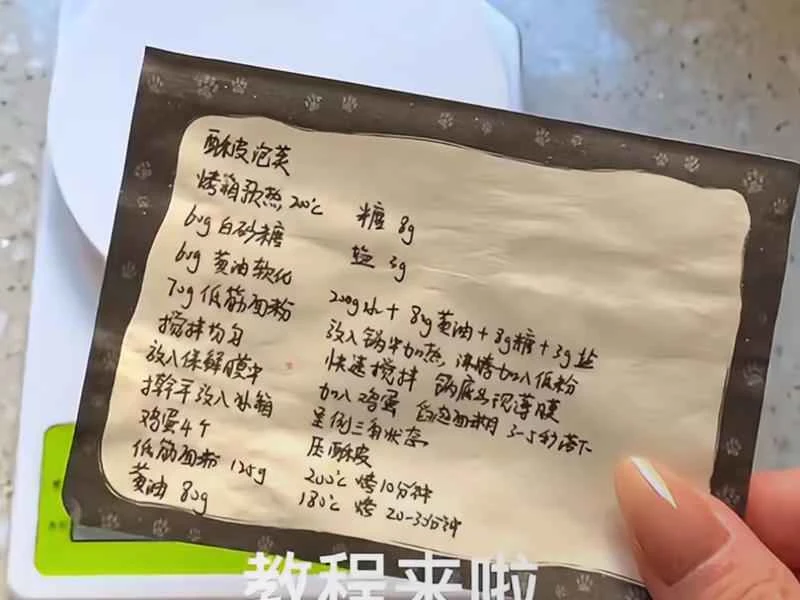 酥皮泡芙
烤箱预热 200℃
60g 白砂糖
60g 黄油软化
70g 低筋面粉
搅拌均匀
放入保鲜膜中
擀平放入冰箱
鸡蛋4个
低筋面粉 125g
黄油 80g
糖 8g
盐 3g
200g水+80g黄油+8g糖+3g盐
放入锅中加热,沸腾加入低粉
快速搅拌 锅底出现薄膜
加入鸡蛋 面糊 3-5秒落下
呈倒三角状态
压酥皮
200℃ 烤10分钟
180℃ 烤 20-30分钟
教程来啦